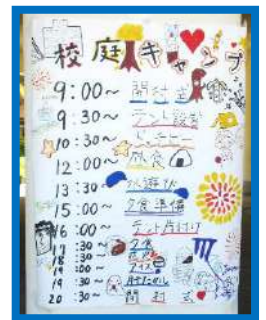 校庭キャンプ
9:00~ 開村式
9:30~ テント設営
10:30~
12:00~ 昼食
13:30~ 水遊び
15:00~ 夕食準備
16:00~ テント片付け
17:30~ 夕食
18:30~
19:00~ クイズ
19:30~ 肝だめし
20:30~ 閉村式